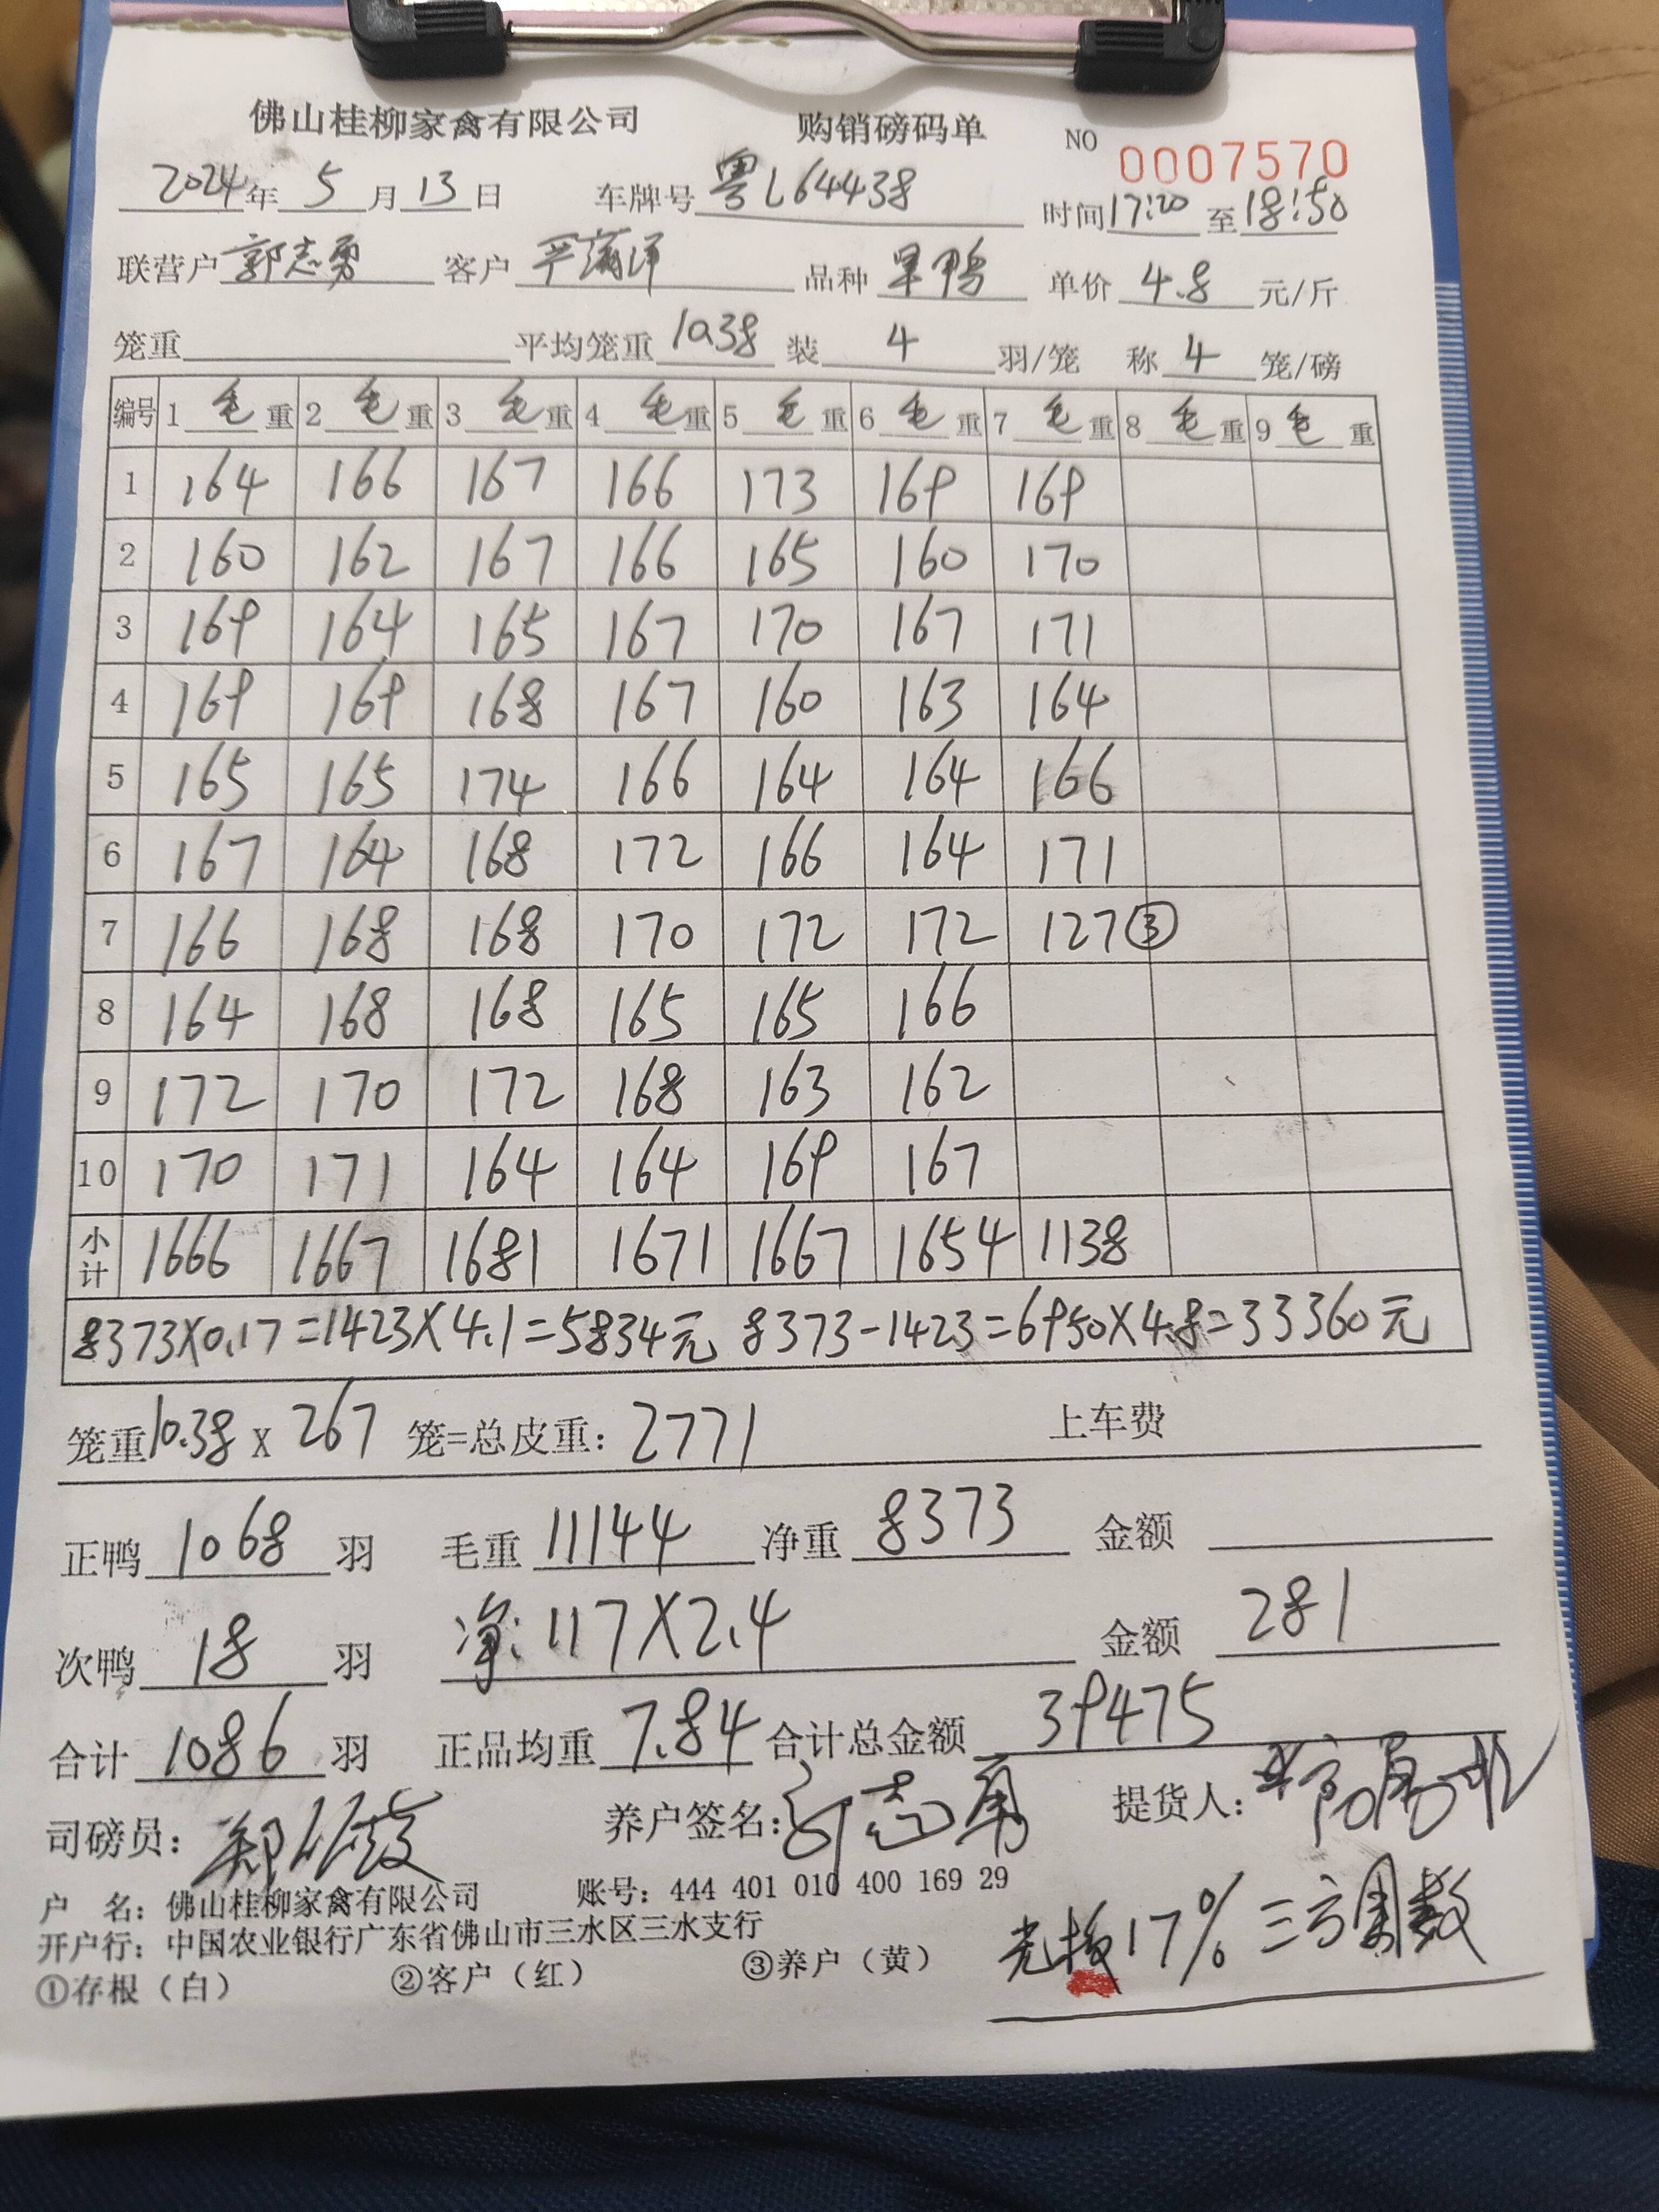 佛山桂柳家禽有限公司 购销磅码单 NO 0007570
2024年 5 月 13 日 车牌号 粤L64438 时间 17:20 至 18:50
联营户 郭志勇 客户 品种 旱鸭 单价 4.8 元/斤
笼重 平均笼重 10.38 装 4 羽/笼 称 4 笼/磅
编号 1 毛 重 2 毛 重 3 毛 重 4 毛 重 5 毛 重 6 毛 重 7 毛 重 8 毛 重 9 毛 重
1 164 166 167 166 173 169 169
2 160 162 167 166 165 160 170
3 169 164 165 167 170 167 171
4 169 169 168 167 160 163 164
5 165 165 174 166 164 164 166
6 167 164 168 172 166 164 171
7 166 168 168 170 172 172 127③
8 164 168 168 165 165 166
9 172 170 172 168 163 162
10 170 171 164 164 169 167
小计 1666 1667 1681 1671 1667 1654 1138
8373X0.17=1423X4.1=5834元 8373-1423=6950X4.8=33360元
笼重 10.38 X 267 笼=总皮重: 2771 上车费
正鸭 1068 羽 毛重 11144 净重 8373 金额
次鸭 18 羽 净: 117X2.4 金额 281
合计 1086 羽 正品均重 7.84 合计总金额 39475
司磅员: 养户签名: 郭志勇 提货人:
户 名: 佛山桂柳家禽有限公司 账号: 444 401 010 400 169 29
开户行: 中国农业银行广东省佛山市三水区三水支行
①存根(白) ②客户(红) ③养户(黄)
17% 三方